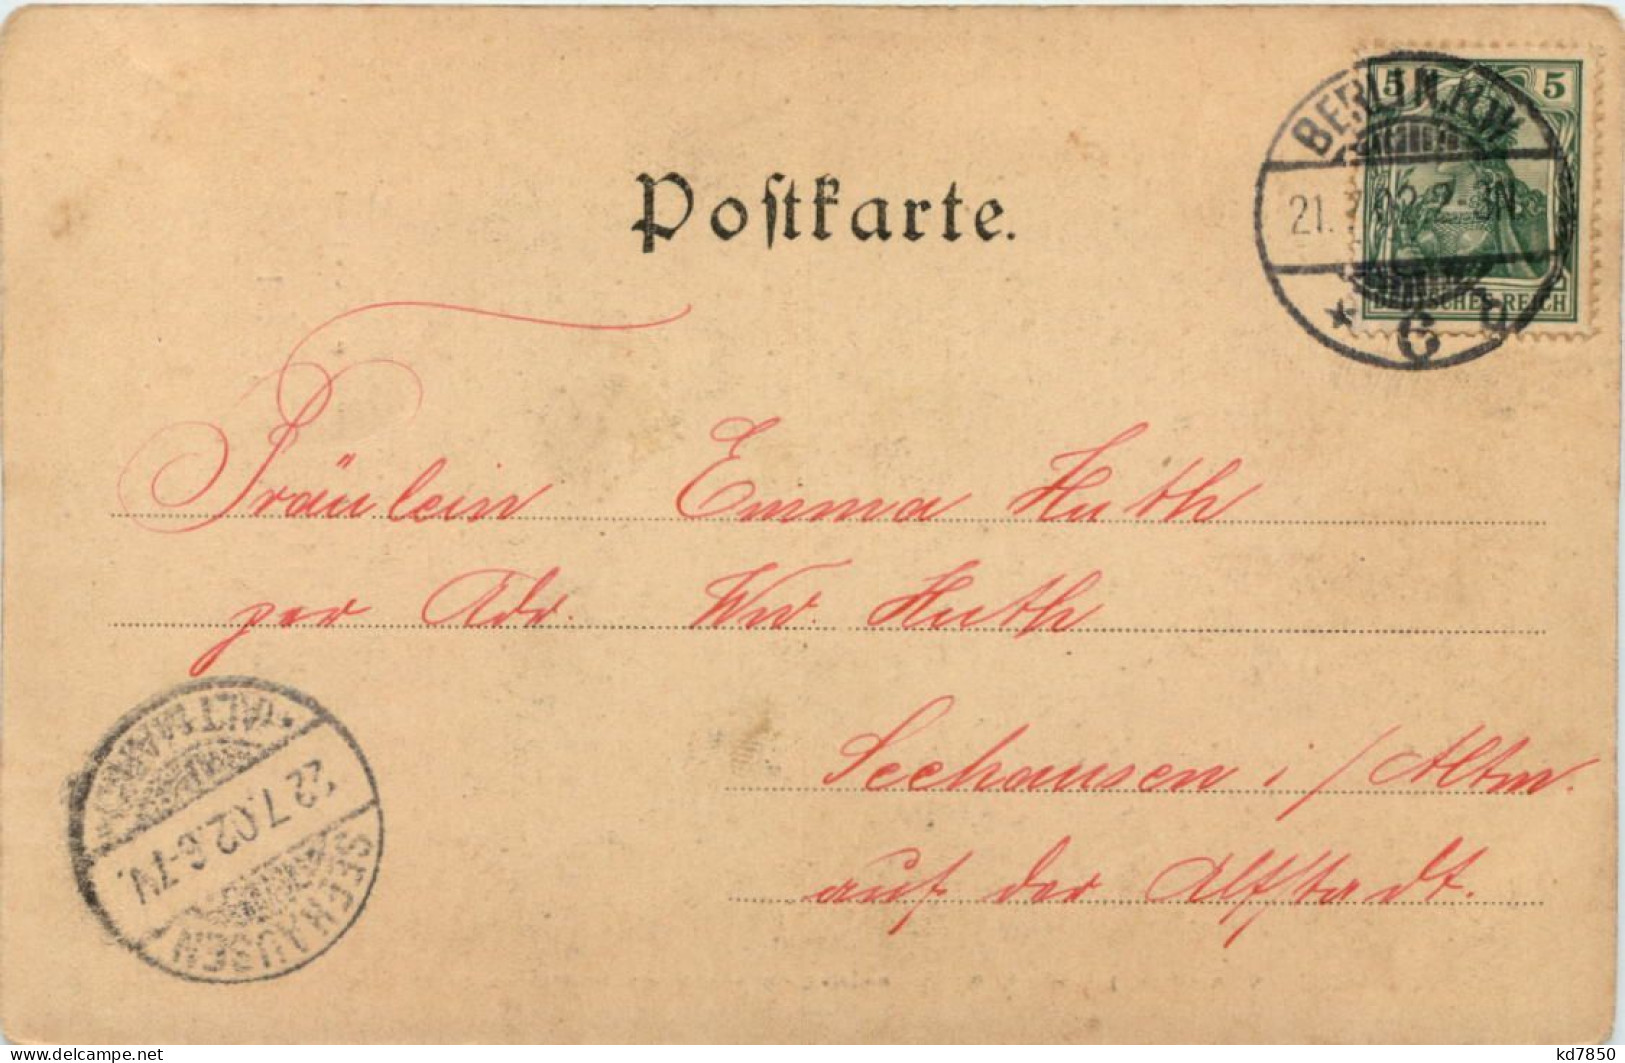 Postkarte.
5 5
BERLIN, N.W.
21. 7. 02. 2-3N.
DEUTSCHES REICH
* 6 d
Fräulein Emma Huth
per Adr. Ww. Huth
Seehausen i/Altm.
auf der Altstadt.
(ALTMARK)
22.7.02. 6-7V.
SEEHAUSEN
www.delcampe.net
kd7850